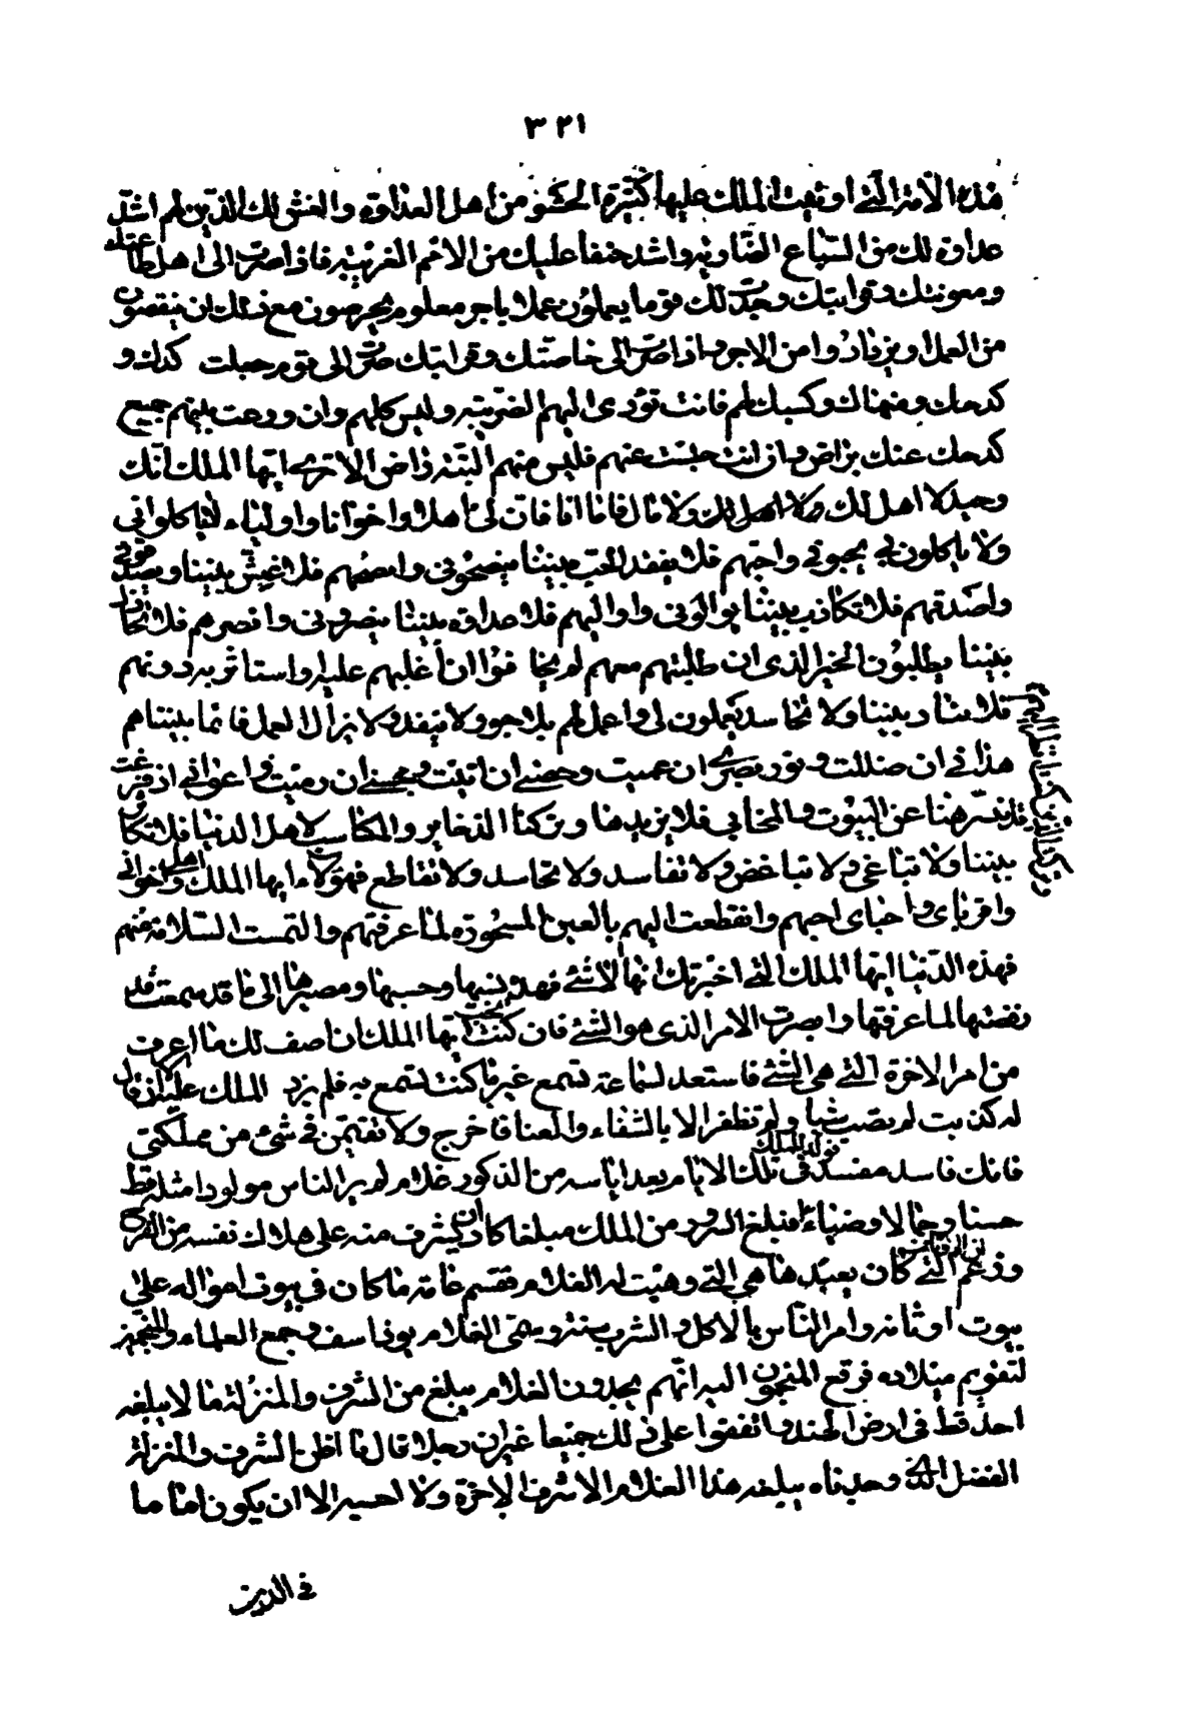 ٣٢١
هذه الامة التي اوتيت الملك عليها كثيرة الحشو من اهل العداوة والغش لك الذين هم اشد
عداوة لك من السباع الضارية واشد حنفا عليك من الامم الغريبة فاذا صرت الى اهل طاعتك
ومعونتك وقرابتك وجدت لك قوما يعملون عملا باجر معلوم يحرصون مع ذلك ان ينقصوك
من العمل ويزدادوا من الاجر واذا صرت الى خاصتك وقرابتك صرت الى قوم جعلت كدك و
كدحك ومهناك وكسبك لهم فانت تؤدي اليهم الضريبة وليس كلهم وان وزعت بينهم جميع
كدحك عنك براض وان انت حبست عنهم فليس منهم البتة راض الا ترى ايها الملك انك
وحيد لا اهل لك ولا مال فاما انا فان لي اهلا واخوانا واولياء لا ياكلوني
ولا ياكلون بي يحبوني واحبهم فلا يفقد الحب بيننا ينصحوني وانصحهم فلا غش بيننا ويصدقوني
واصدقهم فلا تكاذب بيننا يوالوني واواليهم فلا عداوة بيننا ينصروني وانصرهم فلا تخاذل
بيننا يطلبون الخير الذي ان طلبته معهم لم يخافوا ان اغلبهم عليه واستاثر به دونهم
فلا فساد بيننا ولا تحاسد يعملون لي واعمل لهم باجور لا تنفد ولا يزال العمل قائما بيننا هم
هداتي ان ضللت ونور بصري ان عميت وحصني ان اتيت ومجني ان رميت واعواني اذا فزعت
وقد تنزهنا عن البيوت والمخابي فلا نريدها وتركنا الذخاير والمكاسب لاهل الدنيا فلا تكاثر
بيننا ولا تباغي ولا تباغض ولا تفاسد ولا تحاسد ولا تقاطع فهؤلاء ايها الملك اهلي واخواني
واقرباي واحباي احبهم وانقطعت اليهم بالعين المسحورة لما عرفتهم والتمست السلامة منهم
فهذه الدنيا ايها الملك التي اخبرتك انها لا شئ فهذا نسبها وحسبها ومصيرها الى ما قد سمعت قد
رفضتها لما عرفتها وابصرت الامر الذي هو الشئ فان كنت تحب ايها الملك ان اصف لك ما اعرف
من امر الاخرة التي هي الشئ فاستعد لسماعه تسمع غير ما كنت تسمع به فلم يزد الملك عليه الا ان قال
له كذبت لم تصب شيئا ولم تظفر الا بالشقاء والعنا فاخرج ولا تقيمن في شئ من مملكتي
فانك فاسد مفسد وولد للملك في تلك الايام بعد اياسه من الذكور غلام لم ير الناس مولودا مثله قط
حسنا وجمالا وضياء فبلغ السرور من الملك مبلغا كاد ان يشرف منه على هلاك نفسه من الفرح
وزعم ان الاوثان التي كان يعبدها هي التي وهبت له الغلام فقسم عامة ما كان في بيوت امواله على
بيوت اوثانه وامر الناس بالاكل والشرب سنة وسمى الغلام يوذاسف وجمع العلماء والمنجمين
لتقويم ميلاده فرفع المنجمون اليه انهم يجدون الغلام يبلغ من الشرف والمنزلة ما لا يبلغه
احد قط في ارض الهند واتفقوا على ذلك جميعا غير ان رجلا قال ما اظن الشرف والمنزلة
الفضل الذي وجدناه يبلغه هذا الغلام الا شرف الاخرة ولا احسبه الا ان يكون اماما
في الدين